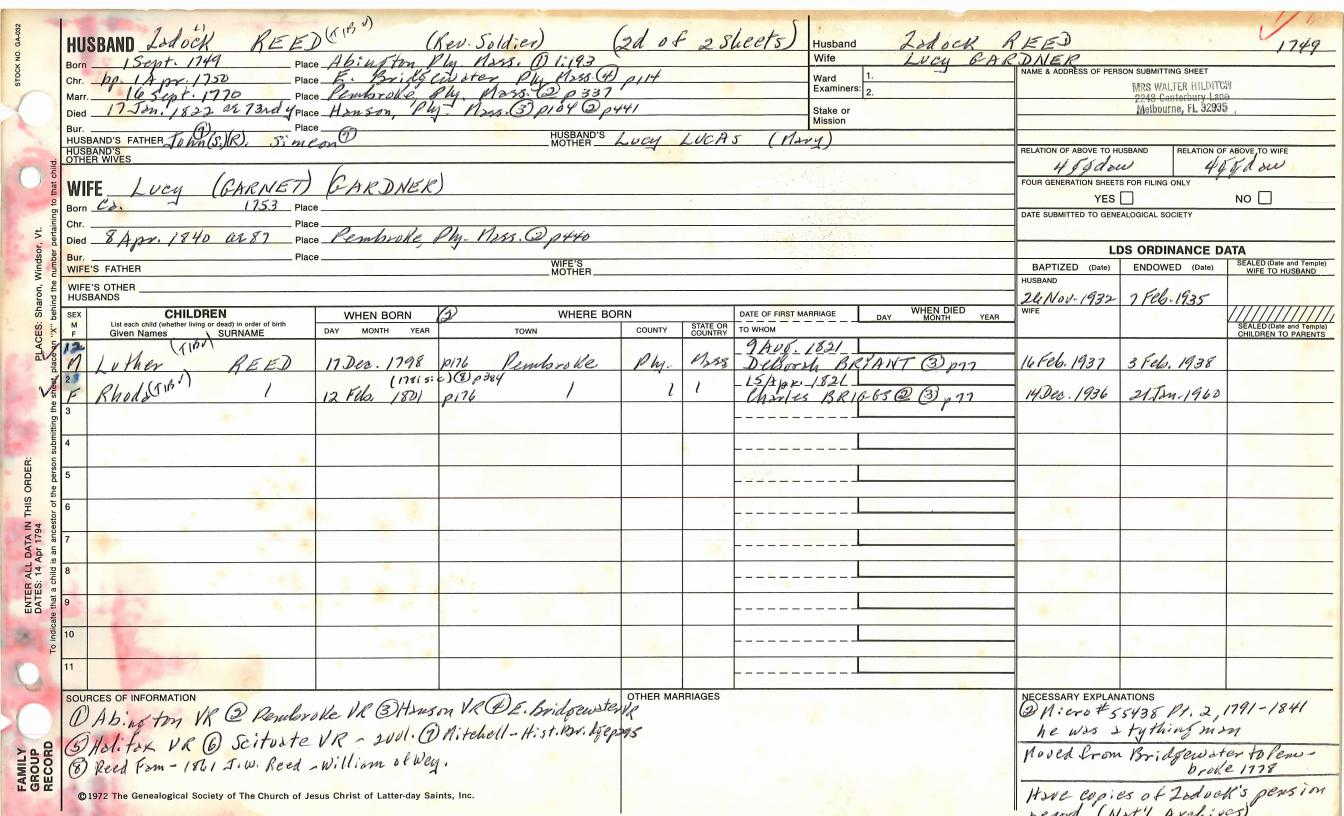 STOCK NO. GA-032
HUSBAND Zadock REED (TIBU) (Rev. Soldier) (2d of 2 sheets)
Born 1 Sept. 1749 Place Abington, Ply. Mass. ① 1:193
Chr. bp. 1 Apr. 1750 Place E. Bridgewater Ply. Mass ④ p114
Marr. 16 Sept. 1770 Place Pembroke Ply Mass. ② p337
Died 17 Jan. 1822 ae 73rd y Place Hanson, Ply. Mass. ③ p104 ② p441
Bur. Place
HUSBAND'S FATHER John (S.)(R). Simeon ⑦ HUSBAND'S MOTHER Lucy LUCAS (Mary)
HUSBAND'S OTHER WIVES
WIFE Lucy (GARNET) (GARDNER)
Born Ca. 1753 Place
Chr. Place
Died 8 Apr. 1840 ae 87 Place Pembroke, Ply. Mass. ② p440
Bur. Place
WIFE'S FATHER WIFE'S MOTHER
WIFE'S OTHER HUSBANDS
Husband Zadock REED 1749
Wife Lucy GARDNER
Ward Examiners: 1.
2.
Stake or Mission
NAME & ADDRESS OF PERSON SUBMITTING SHEET
MRS WALTER HILDITCH
2248 Canterbury Lane
Melbourne, FL 32935
RELATION OF ABOVE TO HUSBAND RELATION OF ABOVE TO WIFE
4ggdau 4ggdau
FOUR GENERATION SHEETS FOR FILING ONLY
YES NO
DATE SUBMITTED TO GENEALOGICAL SOCIETY
LDS ORDINANCE DATA
BAPTIZED (Date) ENDOWED (Date) SEALED (Date and Temple) WIFE TO HUSBAND
HUSBAND
26 Nov. 1932 7 Feb. 1935
WIFE SEALED (Date and Temple) CHILDREN TO PARENTS
SEX M F CHILDREN WHEN BORN ② WHERE BORN DATE OF FIRST MARRIAGE WHEN DIED
List each child (whether living or dead) in order of birth
Given Names SURNAME DAY MONTH YEAR TOWN COUNTY STATE OR COUNTRY TO WHOM DAY MONTH YEAR
12 (TIBU) 9 Aug. 1821
M Luther REED 17 Dec. 1798 p176 Pembroke Ply. Mass Deborah BRYANT ③ p77 16 Feb. 1937 3 Feb. 1938
2 (1781 sic) ⑧ p384 15 Apr. 1821
F Rhoda (TIBU) 12 Feb. 1801 p176 Charles BRIGGS ② ③ p77 14 Dec. 1936 21 Jan. 1960
3
4
5
6
7
8
9
10
11
ENTER ALL DATA IN THIS ORDER:
DATES: 14 Apr 1794 PLACES: Sharon, Windsor, Vt.
To indicate that a child is an ancestor of the person submitting the sheet, place an "X" behind the number pertaining to that child.
FAMILY GROUP RECORD
SOURCES OF INFORMATION
① Abington VR ② Pembroke VR ③ Hanson VR ④ E. Bridgewater VR
⑤ Halifax VR ⑥ Scituate VR - 2vol. ⑦ Mitchell - Hist. Bridge p295
⑧ Reed Fam - 1861 J.W. Reed - William of Wey.
OTHER MARRIAGES
NECESSARY EXPLANATIONS
② Micro # 55438 Pt. 2, 1791-1841
he was a tything man
Moved from Bridgewater to Pem-
broke 1778
Have copies of Zadock's pension
(Nat'l Archives)
©1972 The Genealogical Society of The Church of Jesus Christ of Latter-day Saints, Inc.